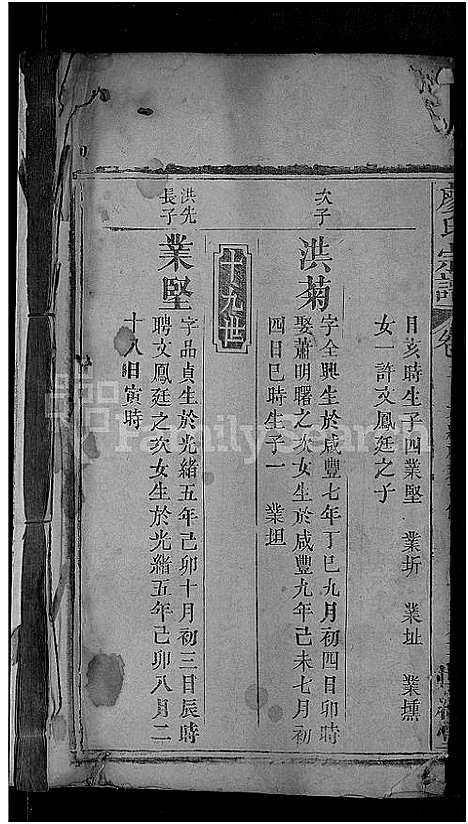 廖氏宗譜
日亥時生子四業堅 業圻 業址 業壎
女一許文鳳廷之子
次子
洪菊
字全興生於咸豐七年丁巳九月初四日卯時
娶蕭明曙之次女生於咸豐九年己未七月初
四日巳時生子一 業坦
十九世
洪先
長子
業堅
字品貞生於光緒五年己卯十月初三日辰時
聘文鳳廷之次女生於光緒五年己卯八月二
十八日寅時
FamilySearch